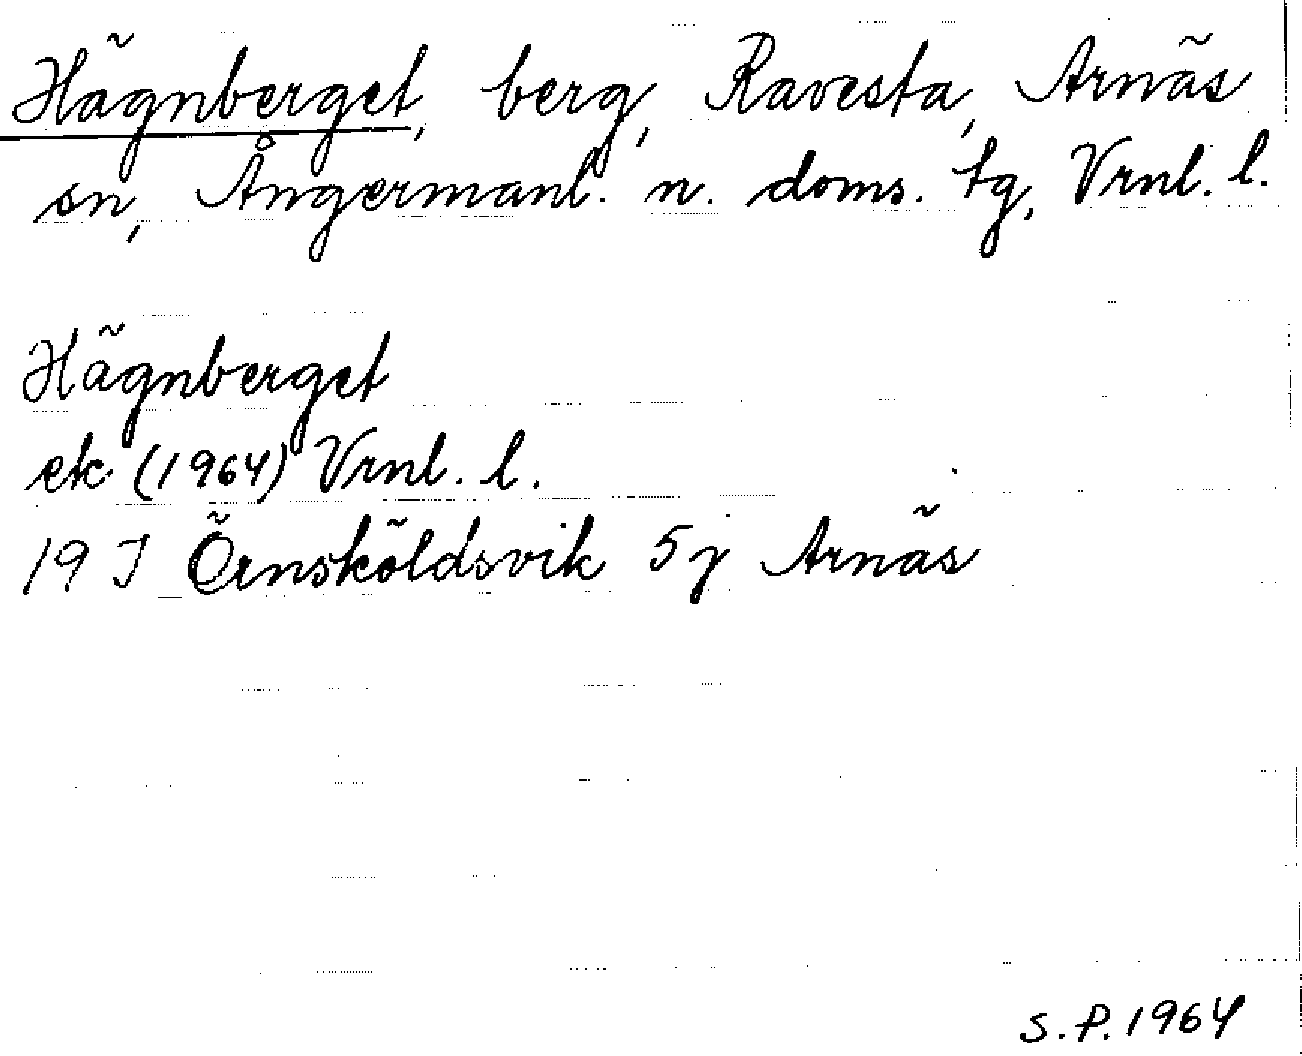 Hägnberget, berg, Ravesta, Arnäs
sn, Ångermanl. n. doms. tg, Vrnl. l.
Hägnberget
ek (1964) Vrnl. l.
19 J Örnsköldsvik 5 j Arnäs
S.P. 1964